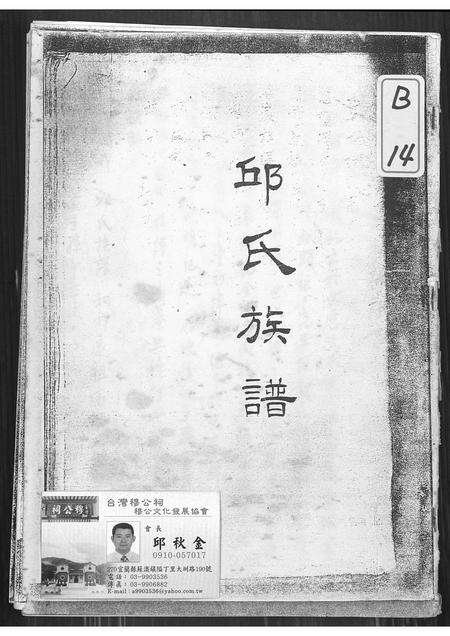 B
14
邱氏族譜
穆公祠
台灣穆公祠
穆公文化發展協會
會長
邱秋金
0910-057017
270宜蘭縣蘇澳鎮隘丁里大圳路190號
電話：03-9903536
傳真：03-9906882
E-mail：a9903536@yahoo.com.tw